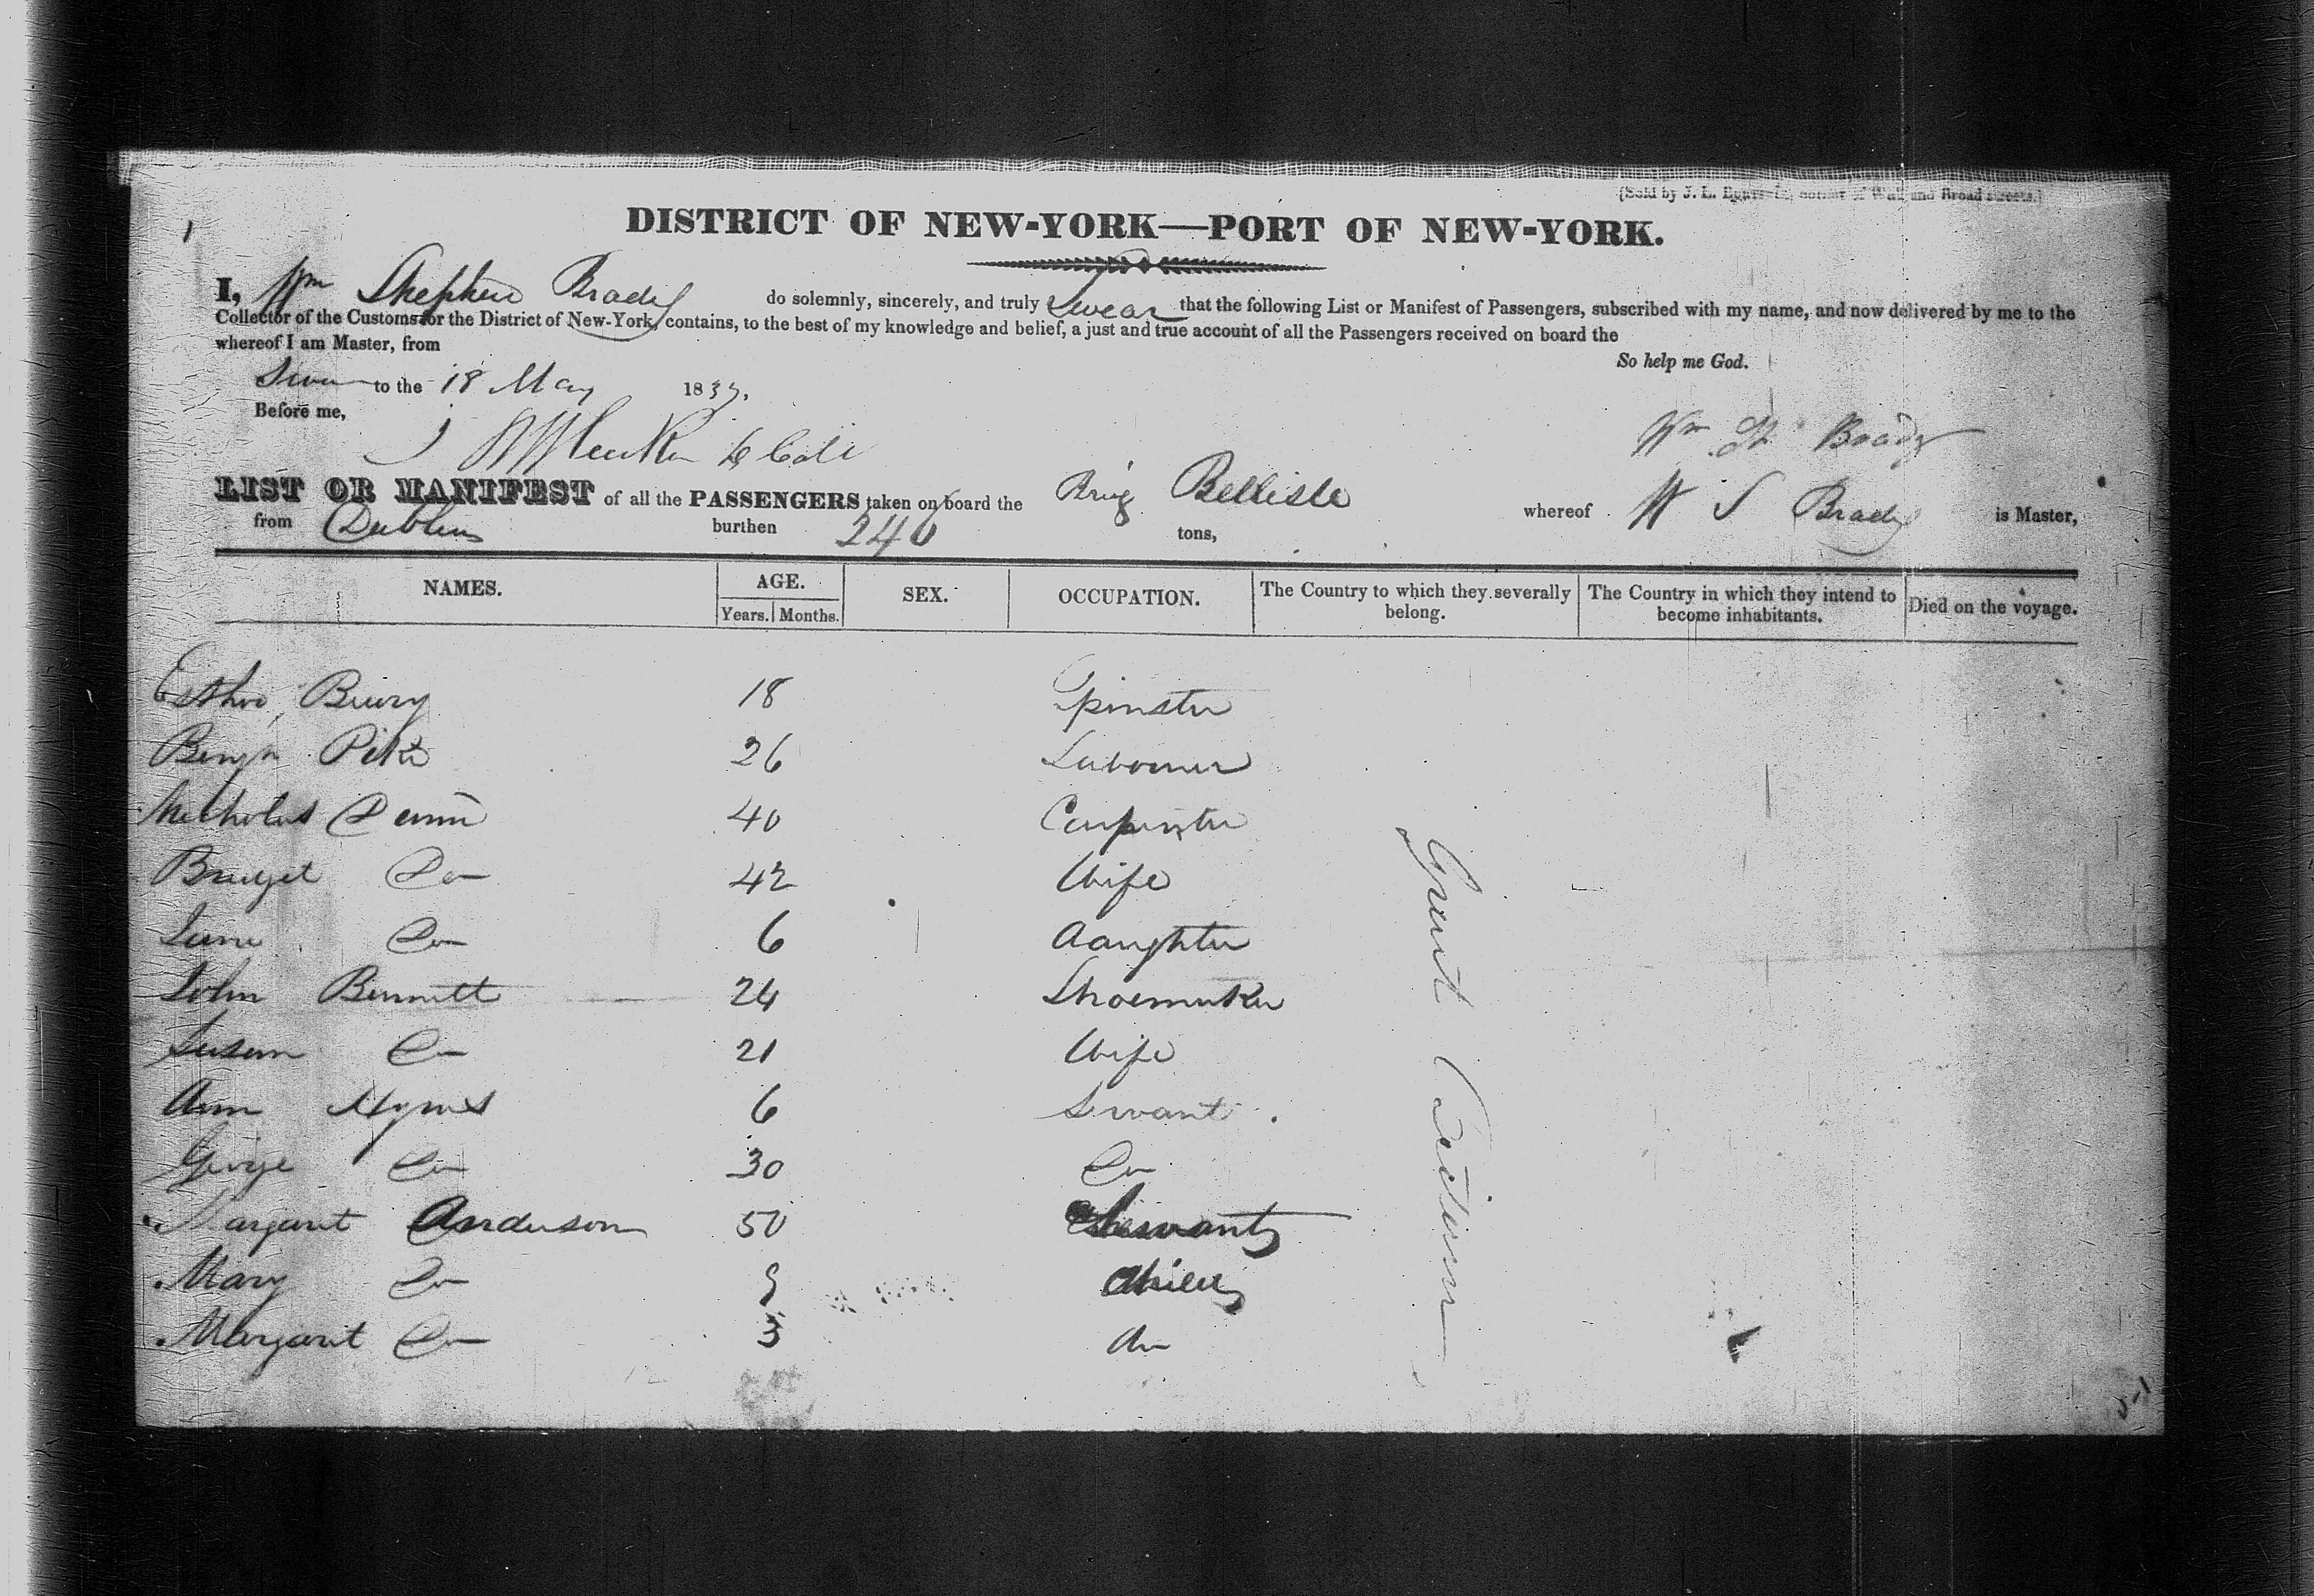 (Sold by J. L. and Broad streets.)
DISTRICT OF NEW-YORK—PORT OF NEW-YORK.
I, Wm Shepherd Brady do solemnly, sincerely, and truly Swear that the following List or Manifest of Passengers, subscribed with my name, and now delivered by me to the
Collector of the Customs for the District of New-York, contains, to the best of my knowledge and belief, a just and true account of all the Passengers received on board the
whereof I am Master, from
So help me God.
Sworn to the 18 May 1837.
Before me,
Wm Sh Brady
LIST OR MANIFEST of all the PASSENGERS taken on board the Brig Bellisle whereof W S Brady is Master,
from Dublin burthen 240 tons,
NAMES. AGE. SEX. OCCUPATION. The Country to which they severally belong. The Country in which they intend to become inhabitants. Died on the voyage.
Years. Months.
Esther 18 Spinster
Benjn Pike 26 Labourer
Nicholas 40 Carpenter
Bridget Do 42 Wife
Jane Do 6 daughter
John Bennett 24 Shoemaker
Susan Do 21 Wife
Ann 6 Servant
George Do 30 Do
Margaret Anderson 50 Servant
Mary Do 9 Child
Margaret Do 3 do
Great Britain